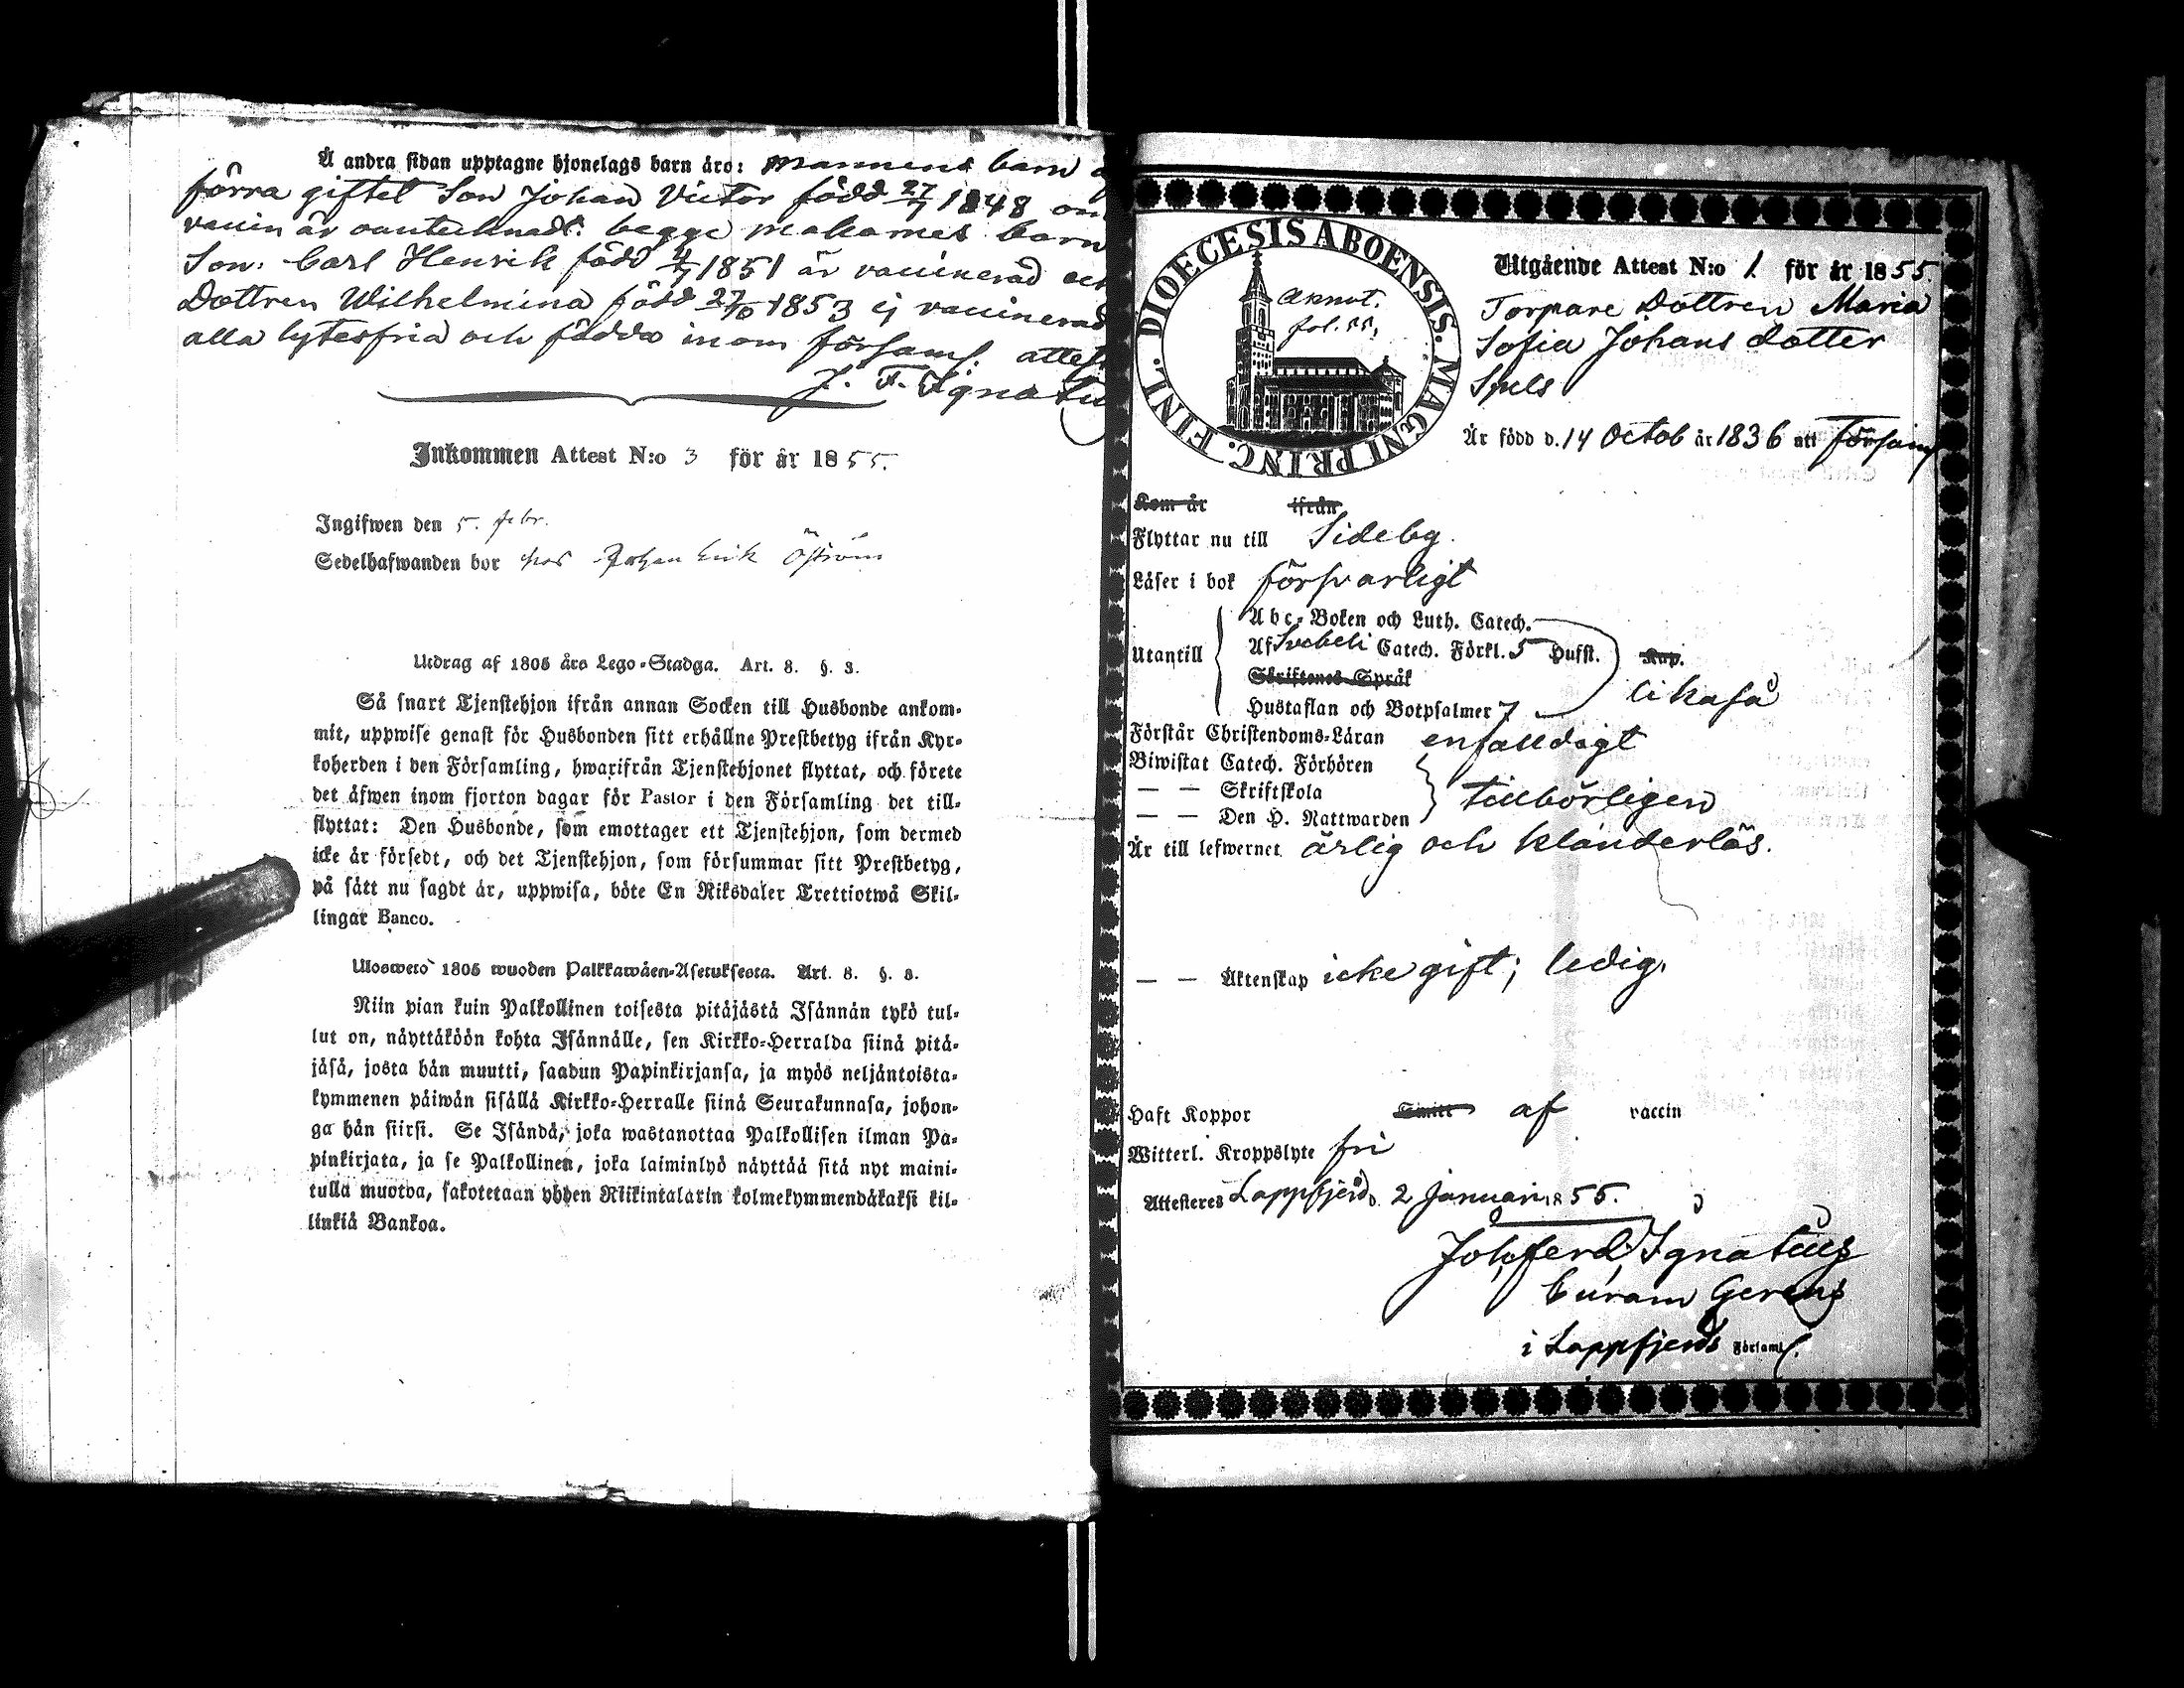 Å andra sidan upptagne hjonelags barn äro: mannens barn
förra giftet Son Johan Victor född 27/7 1848 om
vaccin är oantecknadt. begge makarnes barn
Son: Carl Henrik född 4/7 1851 är vaccinerad och
Dottren Wilhelmina född 27/10 1853 ej vaccinerad
alla lytesfria och födda inom församl. attest
J. F. Ignatiu
Inkommen Attest N:o 3 för år 1855.
Ingifwen den 5. febr.
Sedelhafwanden bor hos Johan Erik Öström
Utdrag af 1805 års Lego-Stadga. Art. 8. §. 3.
Så snart Tjenstehjon ifrån annan Socken till Husbonde ankom-
mit, uppwise genast för Husbonden sitt erhållne Prestbetyg ifrån Kyr-
koherden i den Församling, hwarifrån Tjenstehjonet flyttat, och förete
det äfwen inom fjorton dagar för Pastor i den Församling det till-
flyttat: Den Husbonde, som emottager ett Tjenstehjon, som dermed
icke är försedt, och det Tjenstehjon, som försummar sitt Prestbetyg,
på sätt nu sagdt är, uppwisa, böte En Riksdaler Trettiotwå Skil-
lingar Banco.
Ulosweto 1805 wuoden Palkkawäen-Asetuksesta. Art. 8. §. 3.
Niin pian kuin Palkollinen toisesta pitäjästä Isännän tykö tul-
lut on, näyttäköön kohta Isännälle, sen Kirkko-Herralda siinä pitä-
jäsä, josta hän muutti, saadun Papinkirjansa, ja myös neljäntoista-
kymmenen päiwän sisällä Kirkko-Herralle siinä Seurakunnasa, johon-
ga hän siirsi. Se Isändä, joka wastanottaa Palkollisen ilman Pa-
pinkirjata, ja se Palkollinen, joka laiminlyö näyttää sitä nyt maini-
tulla muotoa, sakotetaan yhden Riikintalarin kolmekymmendäkaksi kil-
linkiä Bankoa.
DIOECESIS ABOENSIS. MAGNI PRINC. FINL.
fol. 55,
Utgående Attest N:o 1. för år 1855
Torpare Dottren Maria
Sofia Johans dotter
Spels
Är född d. 14 Octob år 1836 uti Församl
Kom år ifrån
Flyttar nu till Sideby.
Läser i bok försvarligt
Abc-Boken och Luth. Catech.
Utantill Af Svebeli Catech. Förkl. 5 Hufst. Kap.
Skriftenes Språk
likaså
Hustaflan och Botpsalmer 7
Förstår Christendoms-Läran enfalldigt
Biwistat Catech. Förhören
— — Skriftskola tillbörligen
— — Den H. Nattwarden
Är till lefwernet ärlig och klanderlös.
— — Äktenskap icke gift; ledig.
Haft Koppor Smitt af vaccin
Witterl. Kroppslyte fri
Attesteres Lappfjerd d. 2 Januari 1855.
Joh. Ferd. Ignatius
Curam Gerens
i Lappfjerds Förſaml.